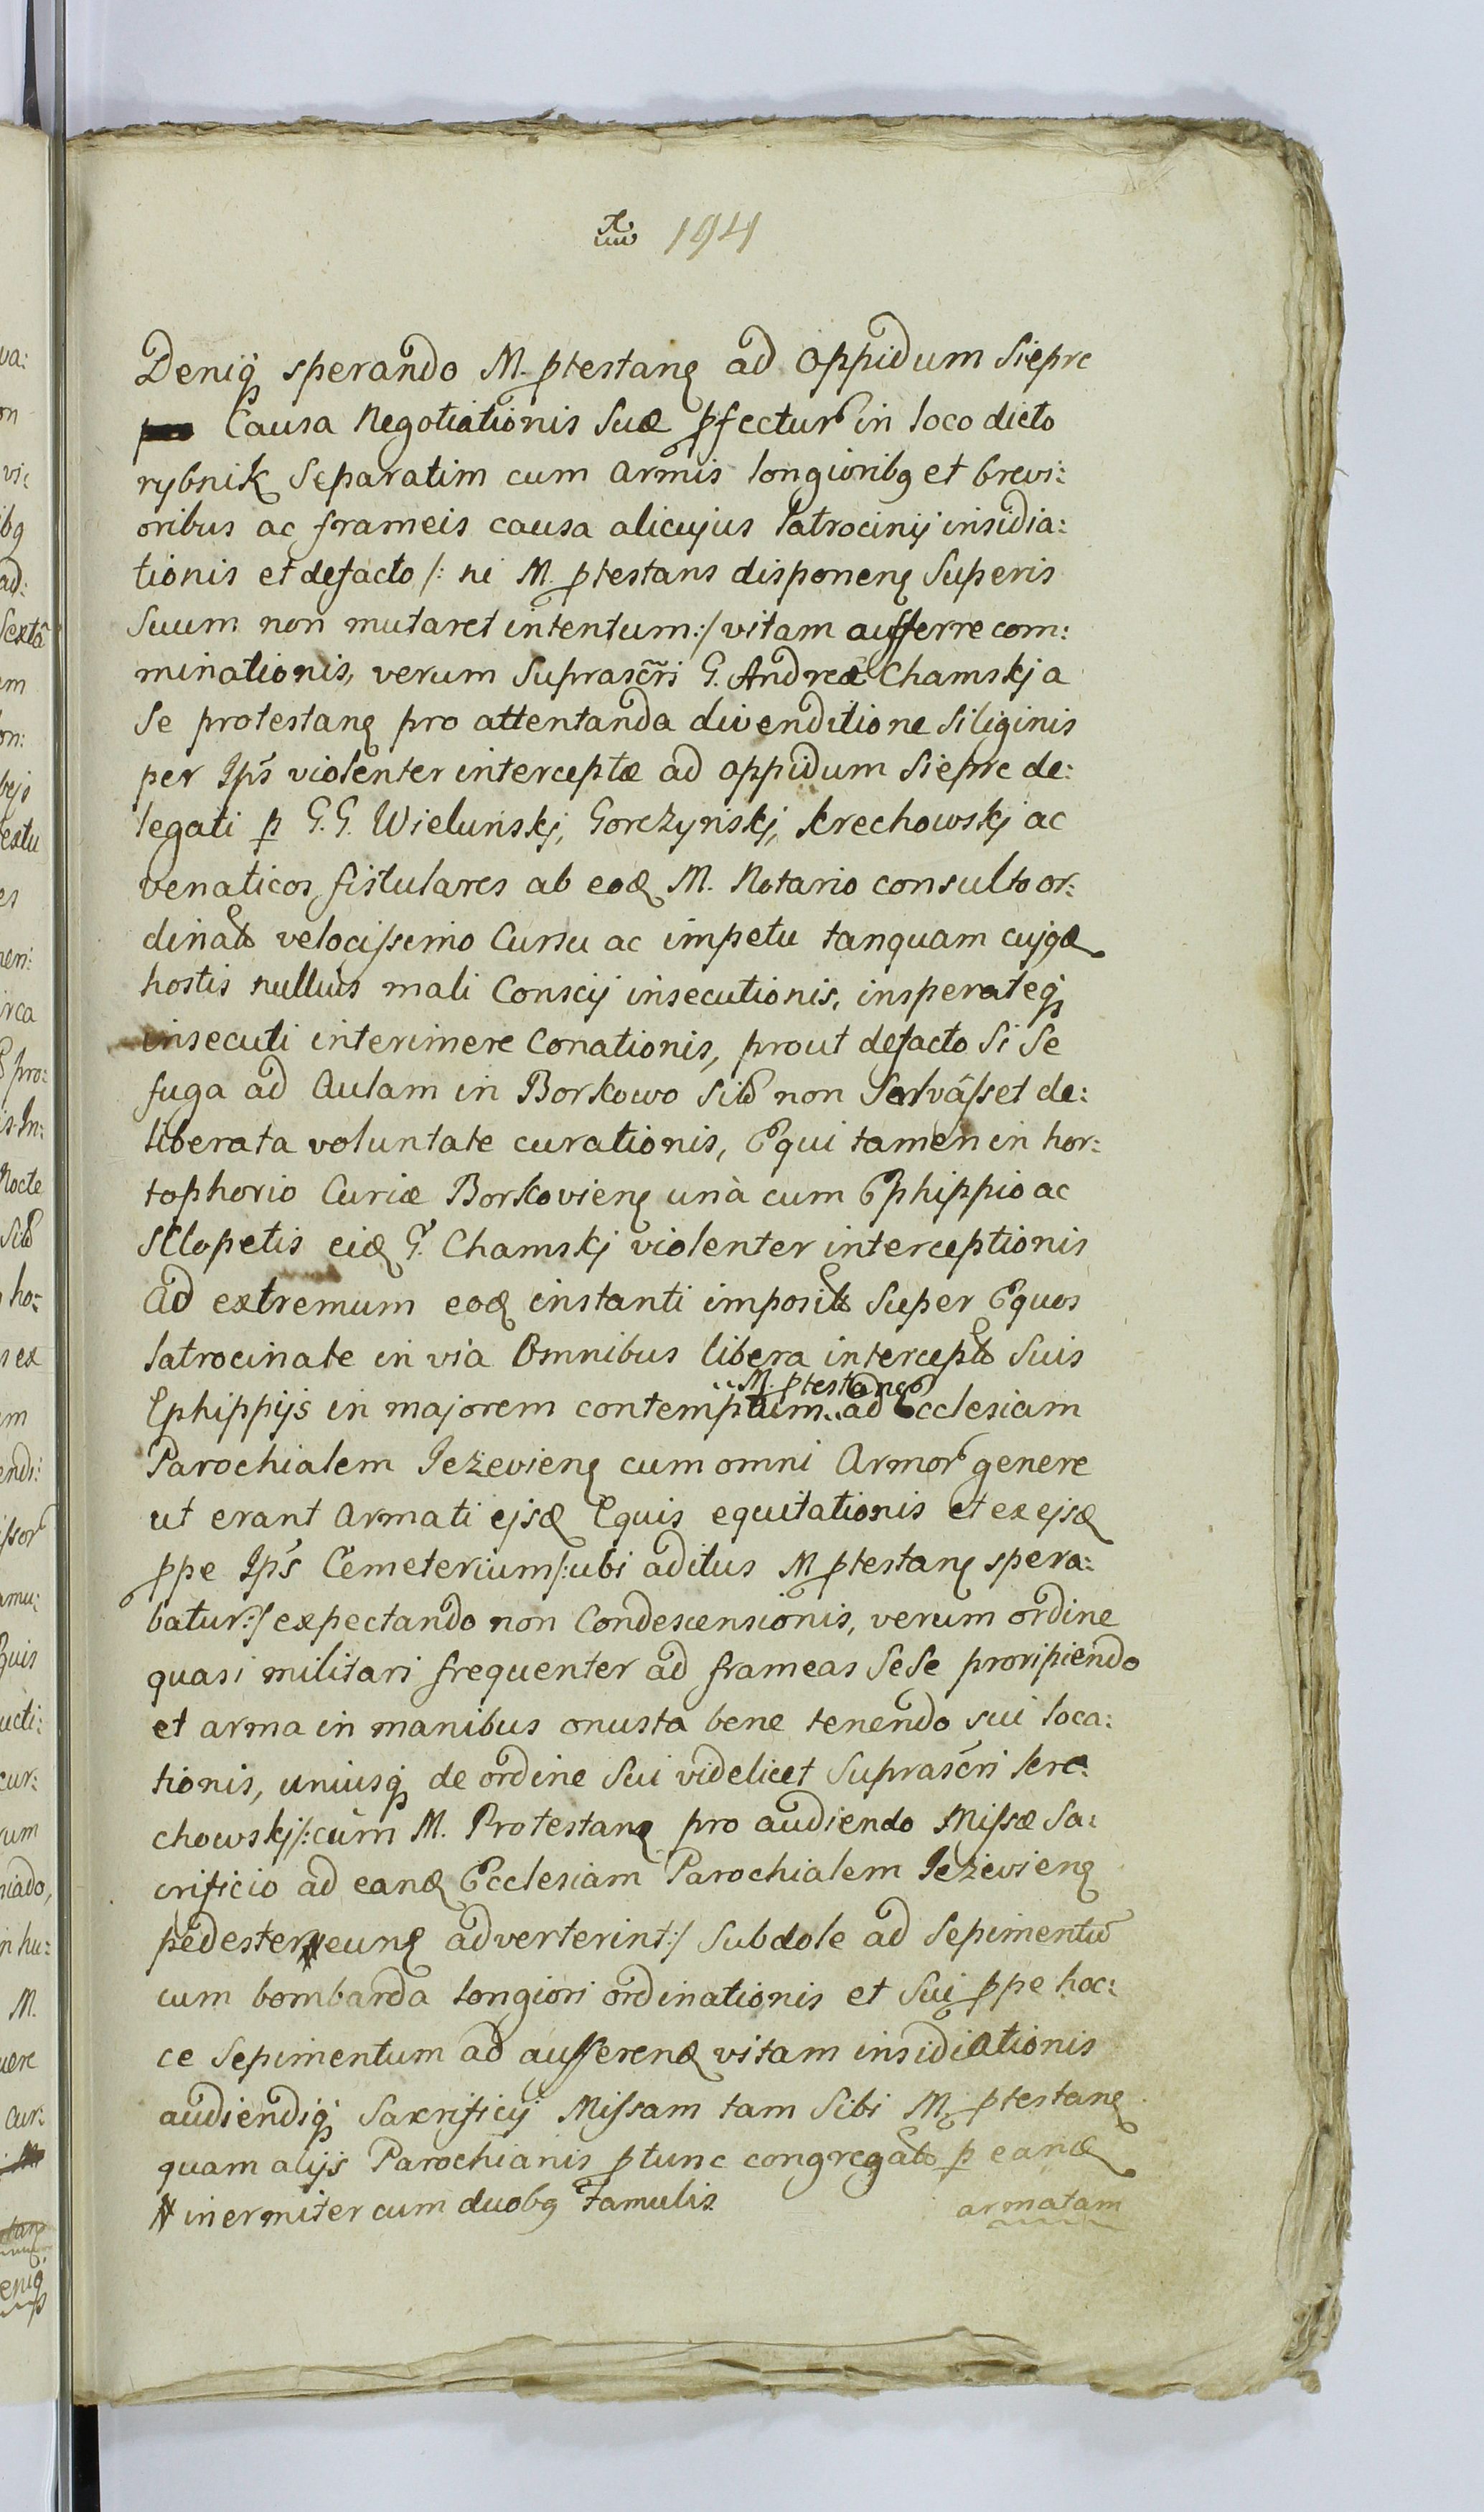 194
Deniq́ sperando M. ptestanȩ ad Oppidum Siepre
Causa Negotiationis Suæ pfectur in loco dicto
rybnik Separatim cum armis longioribq et brevi:
oribus ac frameis causa alicujus latrocinij insidia:
tionis et defacto /: ni M. ptestans disponenȩ Superis
Suum non mutaret intentum :/ vitam aufferre com:
minationis, verum Suprascr̃i G. Andreæ Chamskj a
Se protestanȩ pro attentanda divenditione Siliginis
per Ip̃s violenter interceptæ ad oppidum Sieprc de:
legati p G. G. Wieluńskj, Gorczyńskj, krechowskj ac
venaticos fistulares ab eoð M. Notario consulto or:
dinat velocissimo Cursu ac impetu tanquam cujqæ
hostis nullius mali Conscij insecutionis, insperateq́
insecuti interimere Conationis, prout defacto Si Se
fuga ad Aulam in Borkowo sit non Salvâsset de:
liberata voluntate curationis, Equi tamen in hor:
tophorio Curiæ Borkovienȩ unà cum Ephippio ac
Sclopetis eið G. Chamskj violenter interceptionis
Ad extremum eoð instanti imposit Super Equos
latrocinate in via Omnibus libera intercept Suis
M. ptestanȩ
Ephippijs in majorem contemptum ad Ecclesiam
Parochialem Jeżevienȩ cum omni Armor genere
ut erant Armati ejsð Equis equitationis et ex ejsð
ppe Ip̃s Cemeterium /: ubi aditus M ptestanȩ spera:
batur :/ expectando non Condescensionis, verum ordine
quasi militari frequenter ad frameas Sese proripiendo
et arma in manibus onusta bene tenendo sui loca:
tionis, uniusq́ de ordine Sui videlicet Suprascr̃i kre:
chowskj /: cùm M. Protestanȩ pro audiendo Missæ Sa:
crificio ad eanð Ecclesiam Parochialem Jeżevienȩ
pedester # eunȩ adverterint :/ Subdole ad Sepimentũ
cum bombarda longiori ordinationis et Sui ppe hoc:
ce Sepimentum ad aufferenð vitam insidiationis
audiendiq́ Sacrificij Missam tam Sibi M. ptestanȩ
quam alijs Parochianis ptunc congregat p eanð
# inermiter cum duobq famulis
armatam